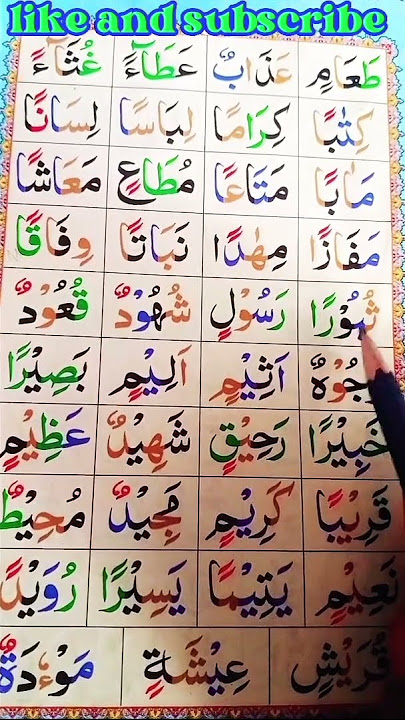 like and subscribe
طَعَامِ عَذَابٌ عَطَآءً غُثَآءً
كِتٰبًا كِرَامًا لِبَاسًا لِسَانًا
مَاٰبًا مَتَاعًا مُطَاعٍ مَعَاشًا
مَفَازًا مِهٰدًا نَبَاتًا وِفَاقًا
ثُبُوْرًا رَسُوْلٍ شُهُوْدٌ قُعُوْدٌ
اَثِيْمٍ اَلِيْمٍ بَصِيْرًا
خَبِيْرًا رَحِيْقٍ شَهِيْدٌ عَظِيْمٍ
قَرِيْبًا كَرِيْمٍ مَجِيْدٌ مُحِيْطٌ
نَعِيْمٍ يَتِيْمًا يَسِيْرًا رُوَيْدًا
قُرَيْشٍ عِيْشَةٍ مَوْءٗدَةٌ